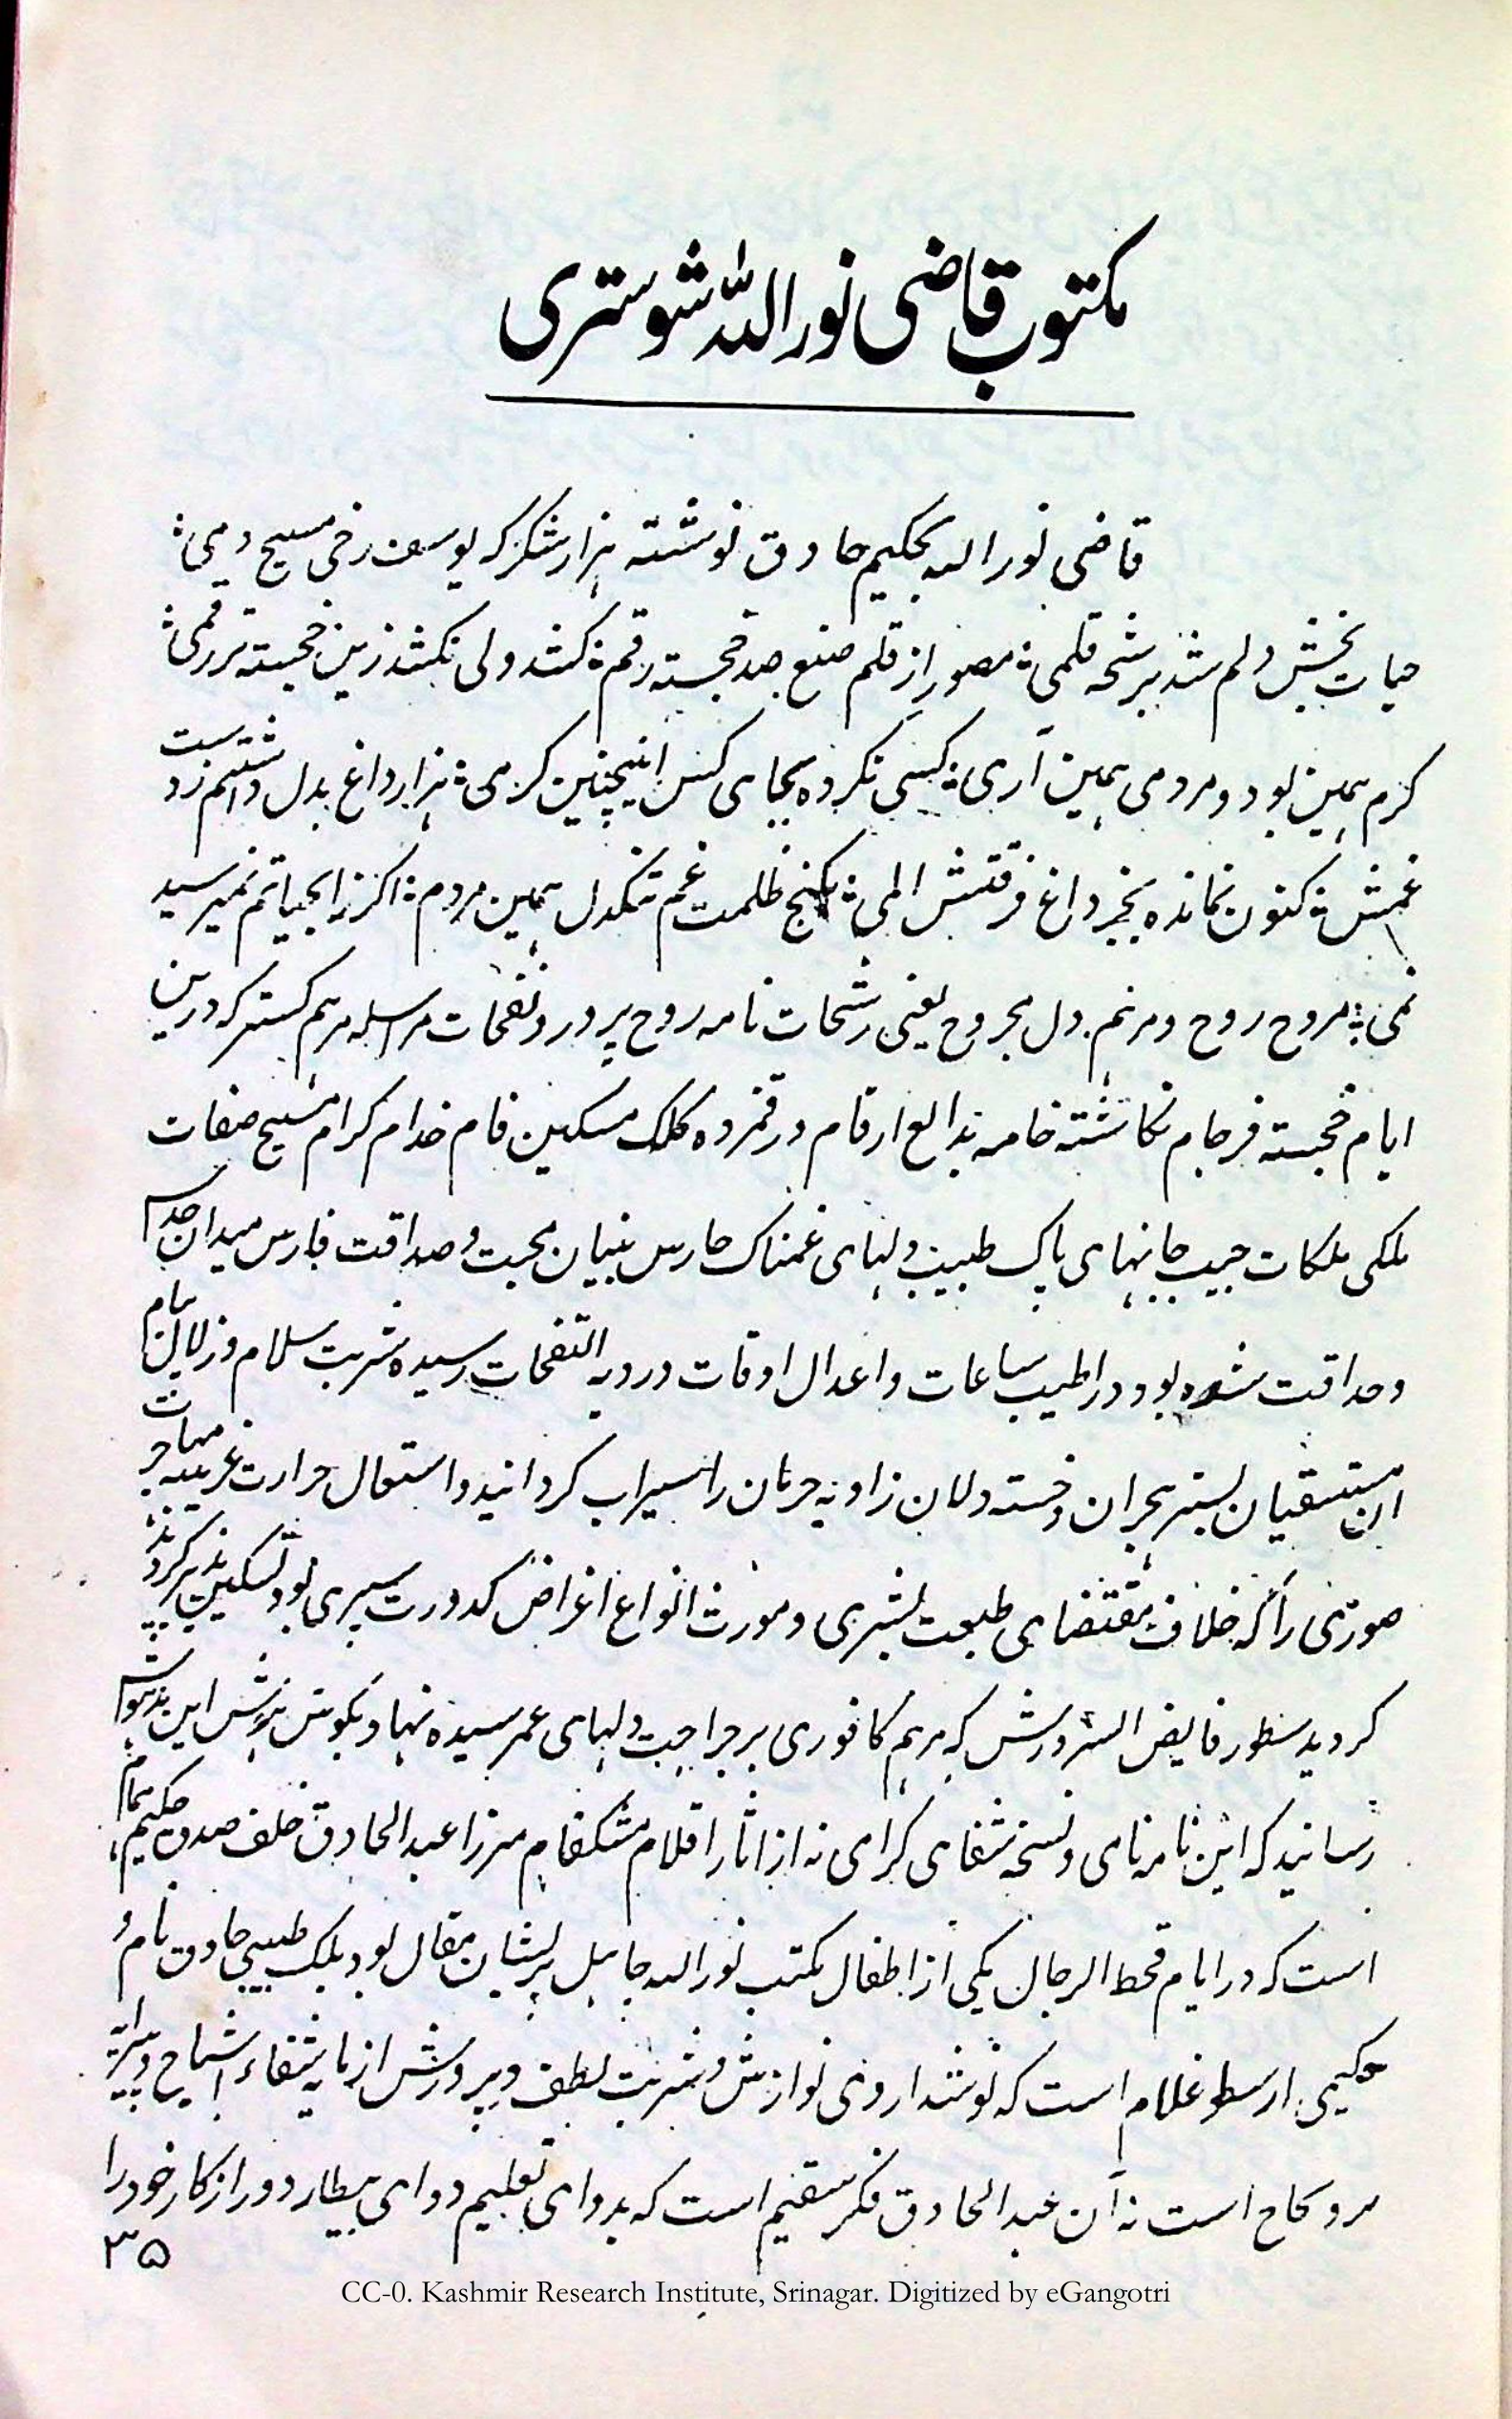 مکتوب قاضی نوراللہ شوستری
قاضی نور الله بحکیم حاذق نوشته هزار شکر که یوسف رخی مسیح دمی ؛
حیات بخش دلم شد برشحه قلمی ؛ مصور از قلم صنع صد خجسته رقم ؛ کشد ولی نکشد زین خجسته تر رقمی ؛
کرم همین بود و مردمی همین آری ؛ کسی نکرده بجای کس اینچنین کرمی ؛ هزار داغ بدل داشتم زدست
غمش ؛ کنون نمانده بجز داغ فرقتش المی ؛ بکنج ظلمت غم تنگدل همین مردم ؛ اگر ز ابحیاتم نمیرسید
نمی ؛ مروح روح و مرهم دل مجروح یعنی رشحات نامه روح پرور و نفحات مراسله مرهم گستر که درین
ایام خجسته فرجام نکاشته خامه بدایع ارقام و رقمزده کلک مسکین فام خدام کرام مسیح صفات
ملکی ملکات حبیب جانهای پاک طبیب دلهای غمناک حارس بنیان محبت و صداقت فارس میدان
وحداقت شده بود در اطیب ساعات و اعدال اوقات رسیده شربت سلام و زلال پیام
ان مستسقیان بستر هجران و خسته دلان زاویه حرمان را سیراب کردانید و استعمال حرارت غریبه
صورتی را که خلاف مقتضای طبیعت بشری و مورث انواع اغراض کدورت سپری بود تسکین پذیر
کردید سطور فایض السرورش که مرهم کافوری بر جراحت دلهای غمرسیده نهاد بکوش هوش این
رسانید که این نامه نامی و نسخه شفای کرامی نه از اثار اقلام مشکفام مرزا عبدالحاذق خلف صدق حکیم همام
است که در ایام قحط الرجال یکی از اطفال مکتب نور الله جاهل پریشان مقال بود بلکه طبیبی حاذق نام و
حکیمی ارسطو غلام است که نوشداروی نوازش و شربت لطف و پرورش از مایه شفاء اشباح و
است نه آن عبدالحاذق فکر سقیم است که بدوای تعلیم دوای بیطار دور از کار خود را
۳۵
CC-0. Kashmir Research Institute, Srinagar. Digitized by eGangotri